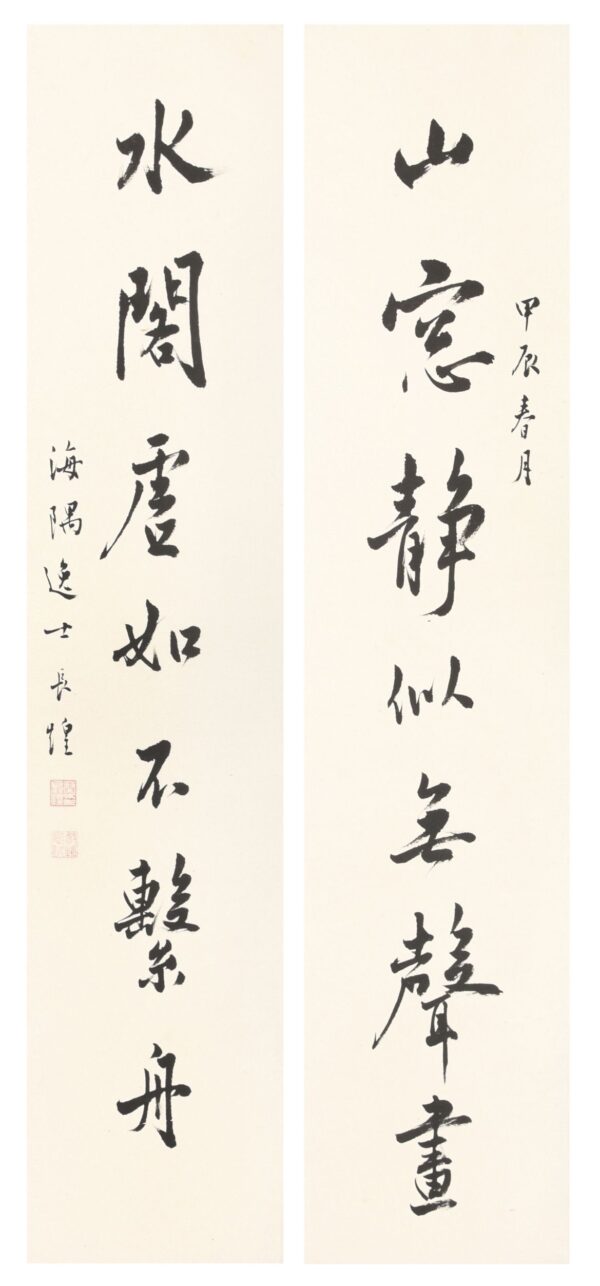 甲辰春月
山窓静似無聲畫
水閣虛如不繫舟
海隅逸士長煌